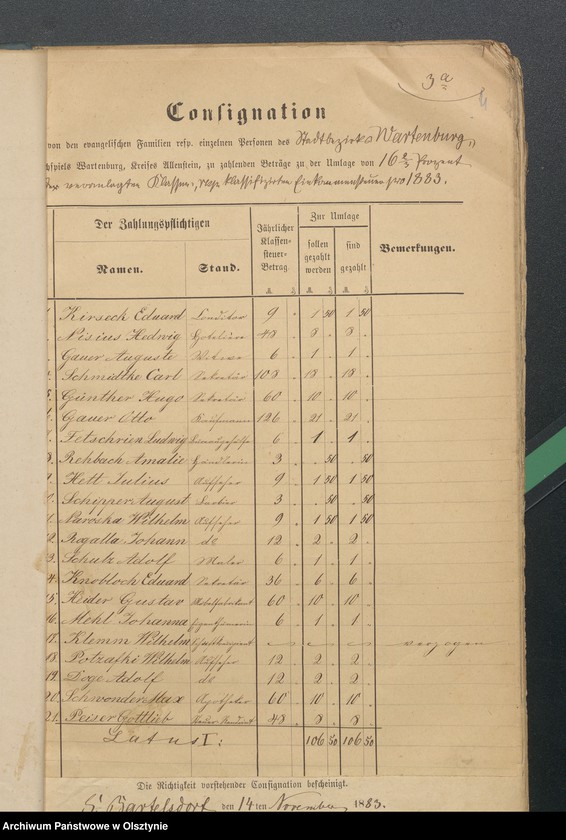 3 a
4
Consignation
von den evangelischen Familien resp. einzelnen Personen des Stadtbezirks Wartenburg,
chspiels Wartenburg, Kreises Allenstein, zu zahlenden Beträge zu der Umlage von 16 2/3 Prozent
der veranlagten Klassen-, resp. klassifizirten Einkommensteuer pro 1883.
Der Zahlungspflichtigen
Namen. Stand.
Jährlicher Klassen-steuer-Betrag.
Zur Umlage
sollen gezahlt werden
sind gezahlt
Bemerkungen.
Kirsech Eduard Conditor 9 . 1 50 1 50
Nisius Hedwig Hoteliere 48 . 8 . 8 .
Gauer Auguste Witwe 6 . 1 . 1 .
Schmidtke Carl Sekretär 108 . 18 . 18 .
Günther Hugo Sekretär 60 . 10 . 10 .
Gauer Otto Kaufmann 126 . 21 . 21 .
Fetschrien Ludwig 6 . 1 . 1 .
8. Rehbach Amalie Händlerin 3 . . 50 . 50
Hett Julius Aufseher 9 1 50 1 50
0. Schipper August 3 . . 50 . 50
1. Naroska Wilhelm Aufseher 9 1 50 1 50
2. Rogalla Johann do 12 . 2 . 2 .
3. Schutz Adolf Maler 6 . 1 . 1 .
4. Knobloch Eduard Sekretär 36 . 6 . 6 .
5. Heider Gustav 60 . 10 . 10 .
16. Mehl Johanna 6 . 1 . 1 .
17. Klemm Wilhelm verzogen
18. Potzafki Wilhelm Aufseher 12 . 2 . 2 .
19. Doge Adolf do 12 . 2 . 2 .
20. Schwonder Max Apotheker 60 . 10 . 10 .
21. Peiser Gottlieb 48 . 8 . 8 .
Latus I: 106 50 106 50
Die Richtigkeit vorstehender Consignation bescheinigt.
Gr. Bartelsdorf den 14ten November 1883.
Archiwum Państwowe w Olsztynie